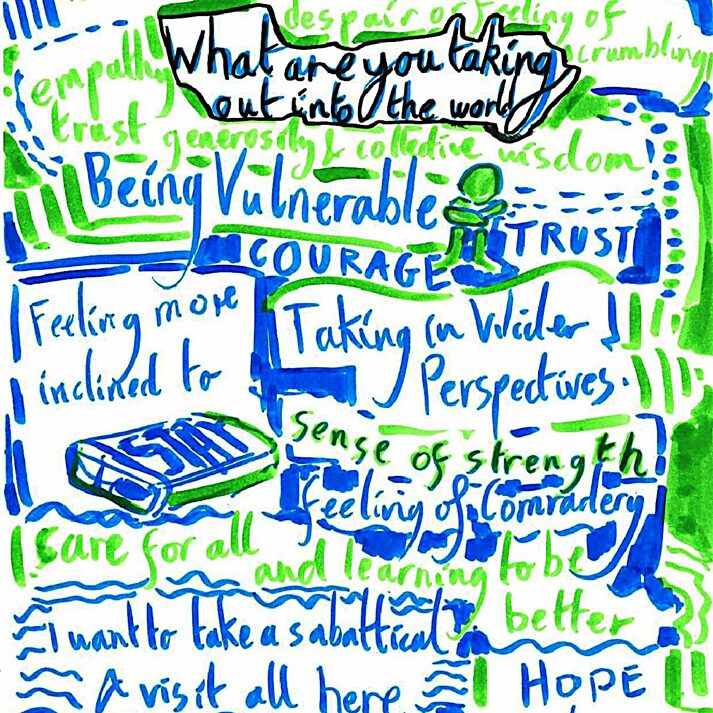 despair or feeling of
crumbling
What are you taking
out into the world
empathy
trust generosity & collective wisdom
Being Vulnerable
COURAGE
TRUST
Feeling more
inclined to
STAY
Taking in Wider
Perspectives.
sense of strength
feeling of Comradery
care for all
and learning to be
better
I want to take a sabattical
& visit all here
HOPE